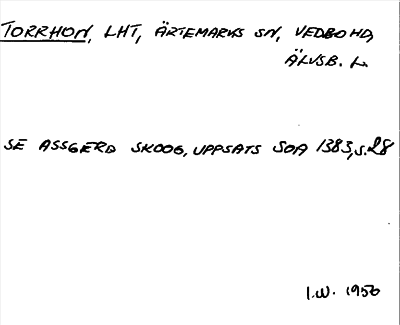 TORRHON, LHT, ÄRTEMARKS SN, VEDBO HD,
ÄLVSB. L.
SE ASSGERD SKOOG, UPPSATS SOA 1383, S. 28
I.W. 1956